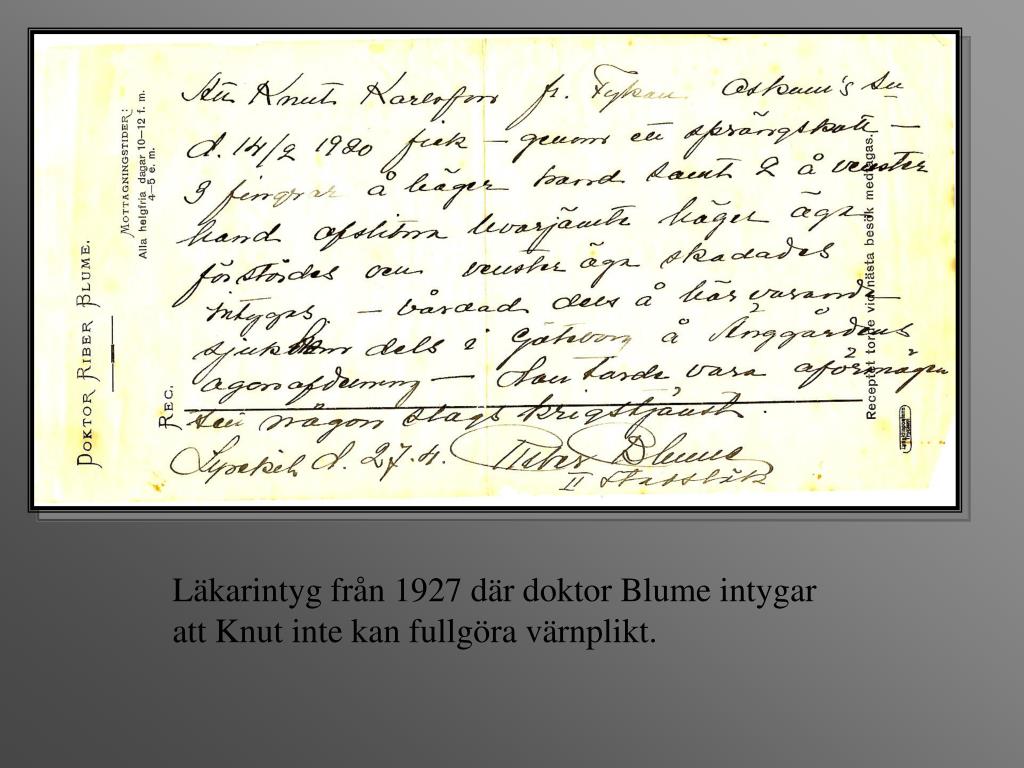 DOKTOR RIBER BLUME.
MOTTAGNINGSTIDER:
Alla helgfria dagar 10–12 f. m.
4–5 e. m.
REC.
Att Knut Karlsson fr. Tykan
d. 14/2 1920 fick – genom ett sprängskott –
3 fingrar å höger hand samt 2 å venster
hand afslitna hvarjämte höger öga
förstördes och venster öga skadades
intygas, – vårdad dels å härvarande
dels i Göteborg å Änggårdens
ögonafdelning – Han torde vara oförmögen
till någon slags krigstjänst.
Lysekil d. 27.4. Riber Blume
II
Receptet torde vid nästa besök medtagas.
Läkarintyg från 1927 där doktor Blume intygar
att Knut inte kan fullgöra värnplikt.